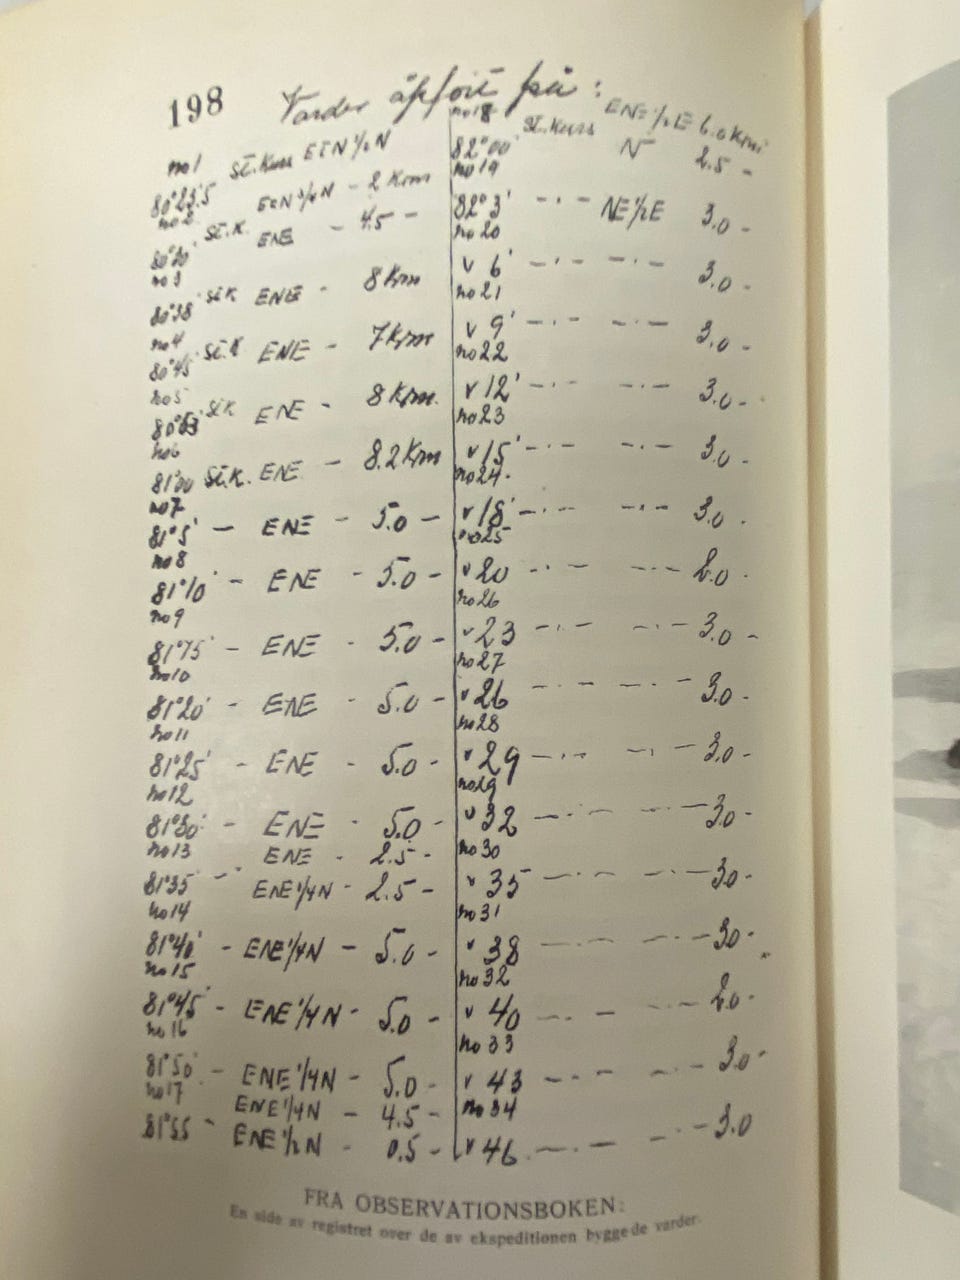 198
Varder opført på:
no 1 St. Kurs
80°23'5
no 2 ENE 3/4 N - 2 Krm
St. K. ENE - 4.5 -
no 3
80°38' St. K ENE - 8 Krm
no 4
80°45' St. K ENE - 7 Krm
no 5
St. K ENE - 8 Krm.
no 6
81°00 St. K. ENE - 8.2 Krm
no 7
81°5' - ENE - 5.0 -
no 8
81°10' - ENE - 5.0 -
no 9
81°15' - ENE - 5.0 -
no 10
81°20' - ENE - 5.0 -
no 11
81°25' - ENE - 5.0 -
no 12
81°30' - ENE - 5.0 -
no 13 ENE - 2.5 -
81°35' - ENE 1/4 N - 2.5 -
no 14
81°40' - ENE 1/4 N - 5.0 -
no 15
81°45' - ENE 1/4 N - 5.0 -
no 16
81°50' - ENE 1/4 N - 5.0 -
no 17 ENE 1/4 N - 4.5 -
81°55 - ENE 1/2 N - 0.5 -
no 18 ENE 1/2 E 6.0 Krm
82°00' St. Kurs N 2.5 -
no 19
82°3' - · - NE 1/2 E 3.0 -
no 20
v 6' - · - - · - 3.0 -
no 21
v 9' - · - - · - 3.0 -
no 22
v 12' - · - - · - 3.0 -
no 23
v 15' - · - - · - 3.0 -
no 24
v 18' - · - - · - 3.0 -
no 25
v 20 - · - - · - 2.0 -
no 26
v 23 - · - - · - 3.0 -
no 27
v 26 - · - - · - 3.0 -
no 28
v 29 - · - - · - 3.0 -
no 29
v 32 - · - - · - 3.0 -
no 30
v 35 - · - - · - 3.0 -
no 31
v 38 - · - - · - 3.0 -
no 32
v 40 - · - - · - 2.0 -
no 33
v 43 - · - - · - 3.0 -
no 34
v 46 - · - - · - 3.0
FRA OBSERVATIONSBOKEN:
En side av registret over de av ekspeditionen byggede varder.